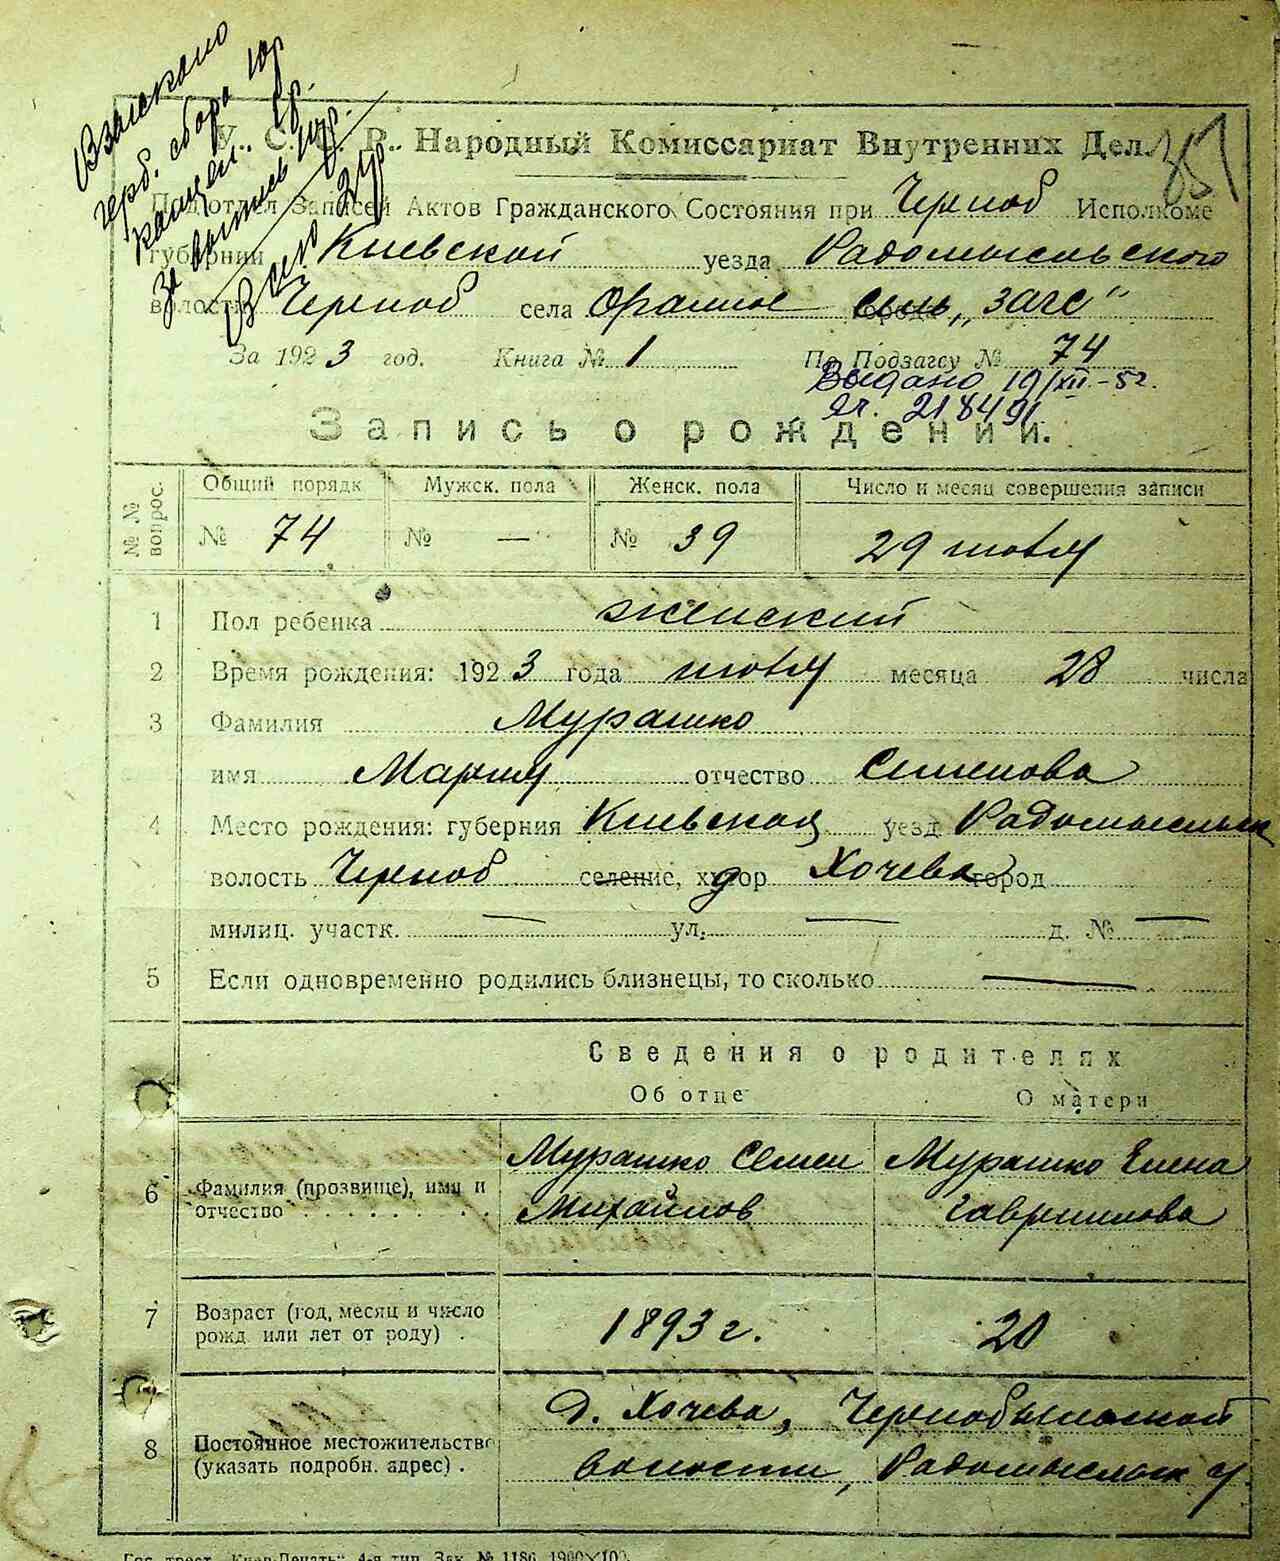 Взыскано
герб. сбора 10р
канцел. 6р.
За выпись 11р.
Всего 27р
У. С. С. Р. Народный Комиссариат Внутренних Дел.
Подотдел Записей Актов Гражданского Состояния при Черноб Исполкоме
губернии Киевской уезда Радомысльского
волости Черноб села Оранное города сель „загс"
За 1923 год. Книга № 1 По Подзагсу № 74
Выдано 19/XII-52.
Яг. 218491
Запись о рождении.
№ № вопрос. Общий порядк Мужск. пола Женск. пола Число и месяц совершения записи
№ 74 № — № 39 29 июля
1 Пол ребенка женский
2 Время рождения: 1923 года июля месяца 28 числа
3 Фамилия Мурашко
имя Мария отчество Семенова
4 Место рождения: губерния Киевская уезд Радомысльск
волость Черноб селение, хутор д Хочева город
милиц. участк. — ул. — д. № —
5 Если одновременно родились близнецы, то сколько —
Сведения о родителях
Об отце О матери
6 Фамилия (прозвище), имя и отчество Мурашко Семен Михайлов Мурашко Елена Гавриилова
7 Возраст (год, месяц и число рожд. или лет от роду) 1893 г. 20
8 Постоянное местожительство (указать подробн. адрес) д. Хочева, Чернобыльской
волости, Радомысльск у.
Гос. трест „Киев-Печать" 4-я тип. Зак. № 1186 1900×100